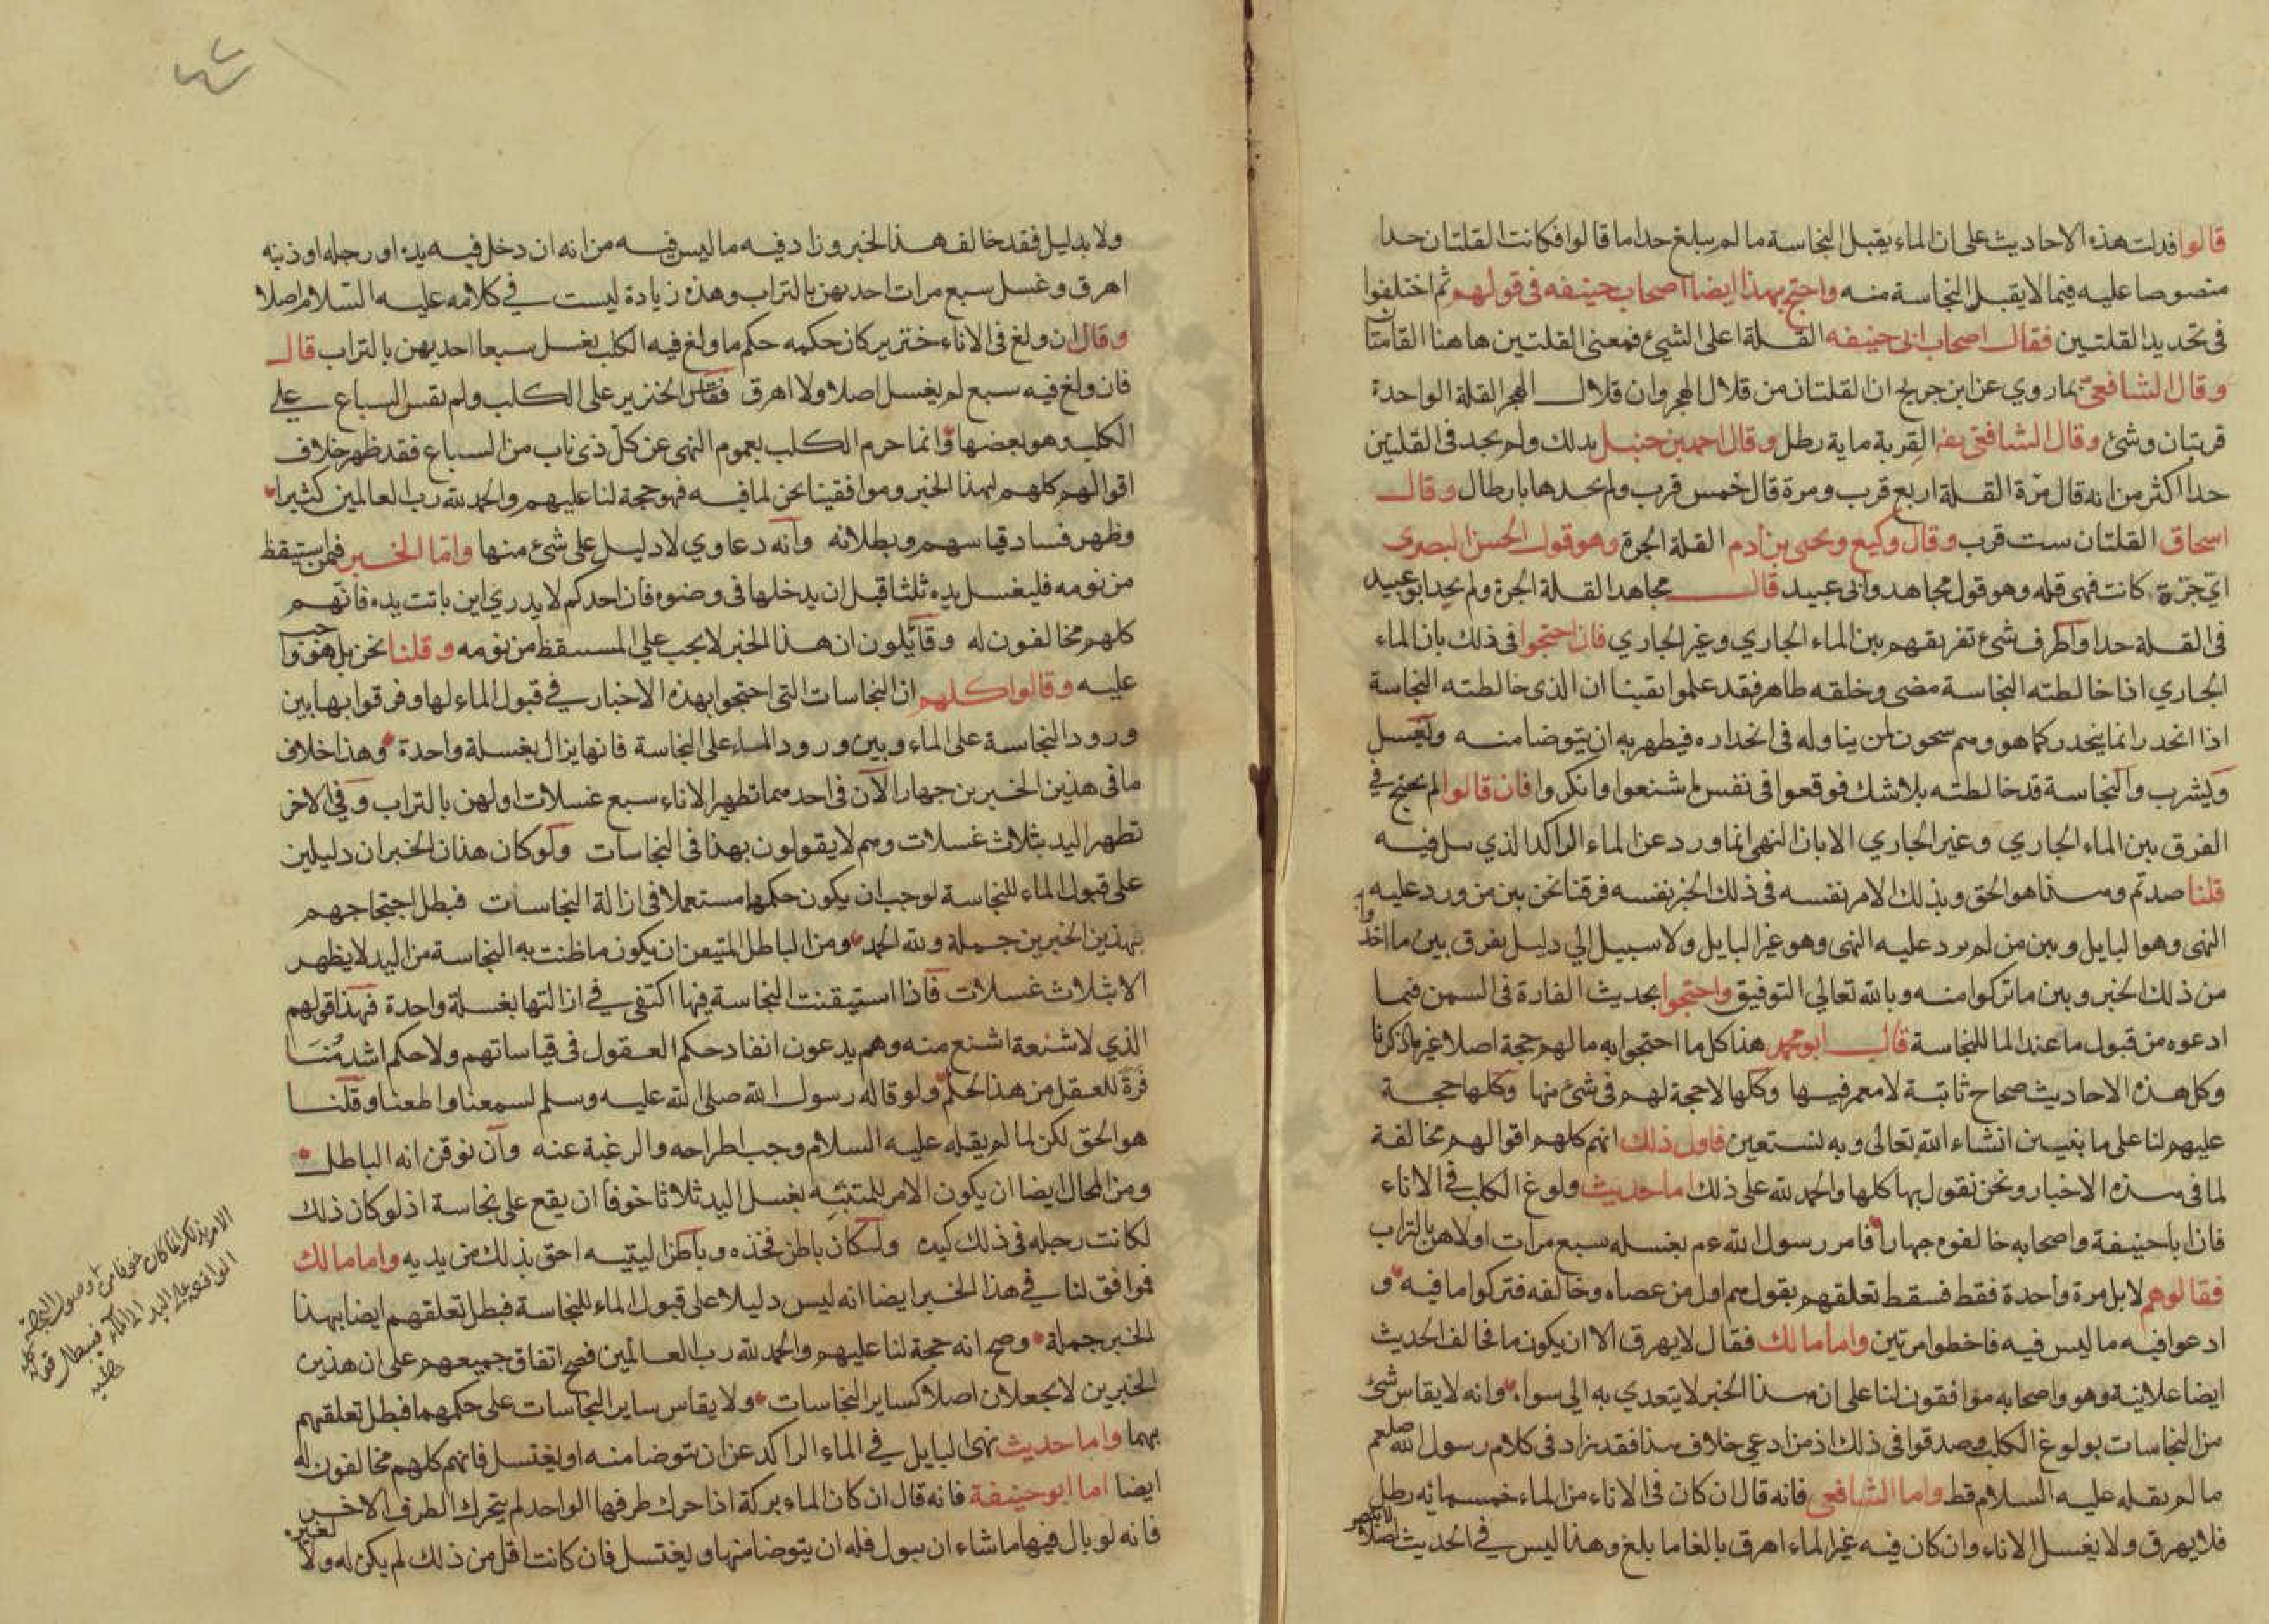 قالوا فدلت هذه الاحاديث على ان الماء يقبل النجاسة ما لم يبلغ حدا ما قالوا فكانت القلتان حدا
منصوصا عليه فيما لا يقبل النجاسة منه واحتج بهذا ايضا اصحاب حنيفه في قولهم ثم اختلفوا
في تحديد القلتين فقال اصحاب ابي حنيفه القلة اعلى الشيء فمعنى القلتين هاهنا القامتان
وقال الشافعي بما روي عن ابن جريج ان القلتان من قلال هجر وان قلال هجر القلة الواحدة
قربتان وشئ وقال الشافعي القربة ماية رطل وقال احمد بن حنبل بذلك ولم يحد في القلتين
حدا اكثر من انه قال مرة القلة اربع قرب ومرة قال خمس قرب ولم يحدها بارطال وقال
اسحاق القلتان ست قرب وقال وكيع ويحيى بن ادم القلة الجرة وهو قول الحسن البصري
اي جرة كانت فهي قله وهو قول مجاهد وابي عبيد قال مجاهد القلة الجرة ولم يحد ابو عبيد
في القلة حدا واطرف شئ تفريقهم بين الماء الجاري وغير الجاري فان احتجوا في ذلك بان الماء
الجاري اذا خالطته النجاسة مضى وخلفه طاهر فقد علموا يقينا ان الذي خالطته النجاسة
اذا انحدر انما ينحدر كما هو وهم يبيحون لمن يناوله في انحداره فيطهر به ان يتوضا منه ويغسل
ويشرب والنجاسة قد خالطته بلا شك فوقعوا في نفس ما شنعوا وانكروا فان قالوا لم نحتج في
الفرق بين الماء الجاري وغير الجاري الا بان النهي انما ورد عن الماء الراكد الذي يبال فيه
قلنا صدقتم وهذا هو الحق وبذلك الامر نفسه في ذلك الخبر نفسه فرقنا نحن بين من ورد عليه
النهي وهو البايل وبين من لم يرد عليه النهي وهو غير البايل ولا سبيل الي دليل يفرق بين ما اخذوا به
من ذلك الخبر وبين ما تركوا منه وبالله تعالي التوفيق واحتجوا بحديث الفارة في السمن فيما
ادعوه من قبول ما عدا الما للنجاسة قال ابو محمد هذا كل ما احتجوا به ما لهم حجة اصلا غير ما ذكرنا
وكل هذه الاحاديث صحاح ثابتة لا مغمز فيها وكلها لا حجة لهم في شئ منها وكلها حجة
عليهم لنا على ما نبين انشاء الله تعالى وبه نستعين فاول ذلك انهم كلهم اقوالهم مخالفة
لما في هذه الاخبار ونحن نقول بها كلها والحمد لله على ذلك اما حديث ولوغ الكلب في الاناء
فان ابا حنيفة واصحابه خالفوه جهارا فامر رسول الله عم بغسله سبع مرات اولاهن بالتراب
فقالوهم لا بل مرة واحدة فقط فسقط تعلقهم بقول هم اول من عصاه وخالفه فتركوا ما فيه و
ادعوا فيه ما ليس فيه فاخطوا مرتين واما مالك فقال لا يهرق الا ان يكون ما فخالف الحديث
ايضا علانية وهو واصحابه موافقون لنا على ان هذا الخبر لا يتعدي به الي سواه وانه لا يقاس شئ
من النجاسات بولوغ الكلب وصدقوا في ذلك اذ من ادعي خلاف هذا فقد زاد في كلام رسول الله صلعم
ما لم يقله عليه السلام قط واما الشافعي فانه قال ان كان في الاناء من الماء خمسمائه رطل
فلا يهرق ولا يغسل الاناء وان كان فيه غير الماء اهرق بالغا ما بلغ وهذا ليس في الحديث اصلا لا بنص
ولا بدليل فقد خالف هذا الخبر وزاد فيه ما ليس فيه من انه ان دخل فيه يده او رجله او ذنبه
اهرق وغسل سبع مرات احديهن بالتراب وهذه زيادة ليست في كلامه عليه السلام اصلا
وقال ان ولغ في الاناء خنزير كان حكمه حكم ما ولغ فيه الكلب يغسل سبعا احديهن بالتراب قال
فان ولغ فيه سبع لم يغسل اصلا ولا اهرق فقاس الخنزير على الكلب ولم يقس السباع علي
الكلب وهو بعضها وانما حرم الكلب بعموم النهي عن كل ذي ناب من السباع فقد ظهر خلاف
اقوالهم كلهم لهذا الخبر وموافقينا نحن لما فيه فهو حجة لنا عليهم والحمد لله رب العالمين كثيرا
وظهر فساد قياسهم وبطلانه وانه دعاوي لا دليل على شئ منها واما الخبر فيمن استيقظ
من نومه فليغسل يده ثلثا قبل ان يدخلها في وضوه فان احدكم لا يدري اين باتت يده فانهم
كلهم مخالفون له وقائلون ان هذا الخبر لا يجب علي المستيقظ من نومه وقلنا نحن بل هو واجب
عليه وقالوا كلهم ان النجاسات التي احتجوا بهذه الاخبار في قبول الماء لها وفرقوا بها بين
ورود النجاسة على الماء وبين ورود الماء على النجاسة فانها يزال بغسلة واحدة وهذا خلاف
ما في هذين الخبرين جهارا لان في احدهما تطهير الاناء سبع غسلات اولهن بالتراب وفي الاخر
تطهير اليد بثلاث غسلات وهم لا يقولون بهذا في النجاسات ولو كان هذان الخبران دليلين
على قبول الماء للنجاسة لوجب ان يكون حكمها مستعملا في ازالة النجاسات فبطل احتجاجهم
بهذين الخبرين جملة ولله الحمد ومن الباطل المتيقن ان يكون ما ظنت به النجاسة من اليد لا يطهر
الا بثلاث غسلات فاذا استيقنت النجاسة فيها اكتفي في ازالتها بغسلة واحدة فهذا قولهم
الذي لا شنعة اشنع منه وهم يدعون انفاد حكم العقول في قياساتهم ولا حكم اشد منا
فرة للعقل من هذا الحكم ولو قاله رسول الله صلى الله عليه وسلم لسمعنا واطعنا وقلنا
هو الحق لكن لما لم يقله عليه السلام وجب اطراحه والرغبة عنه وان نوقن انه الباطل
ومن المحال ايضا ان يكون الامر للمتنبه بغسل اليد ثلاثا خوفا ان يقع على نجاسة اذ لو كان ذلك
لكانت رجله في ذلك كيده ولكان باطن فخذه وباطن اليتيه احق بذلك من يديه واما مالك
فموافق لنا في هذا الخبر ايضا انه ليس دليلا على قبول الماء للنجاسة فبطل تعلقهم ايضا بهذا
الخبر جملة وصح انه حجة لنا عليهم والحمد لله رب العالمين فصح اتفاق جميعهم على ان هذين
الخبرين لا يجعلان اصلا كساير النجاسات ولا يقاس ساير النجاسات على حكمهما فبطل تعلقهم
بهما واما حديث نهى البايل في الماء الراكد عن ان يتوضا منه او يغتسل فانهم كلهم مخالفون له
ايضا اما ابو حنيفة فانه قال ان كان الماء بركة اذا حرك طرفها الواحد لم يتحرك الطرف الاخر
فانه لو بال فيها ما شاء ان يبول فله ان يتوضا منها ويغتسل فان كانت اقل من ذلك لم يكن له ولا لغيره